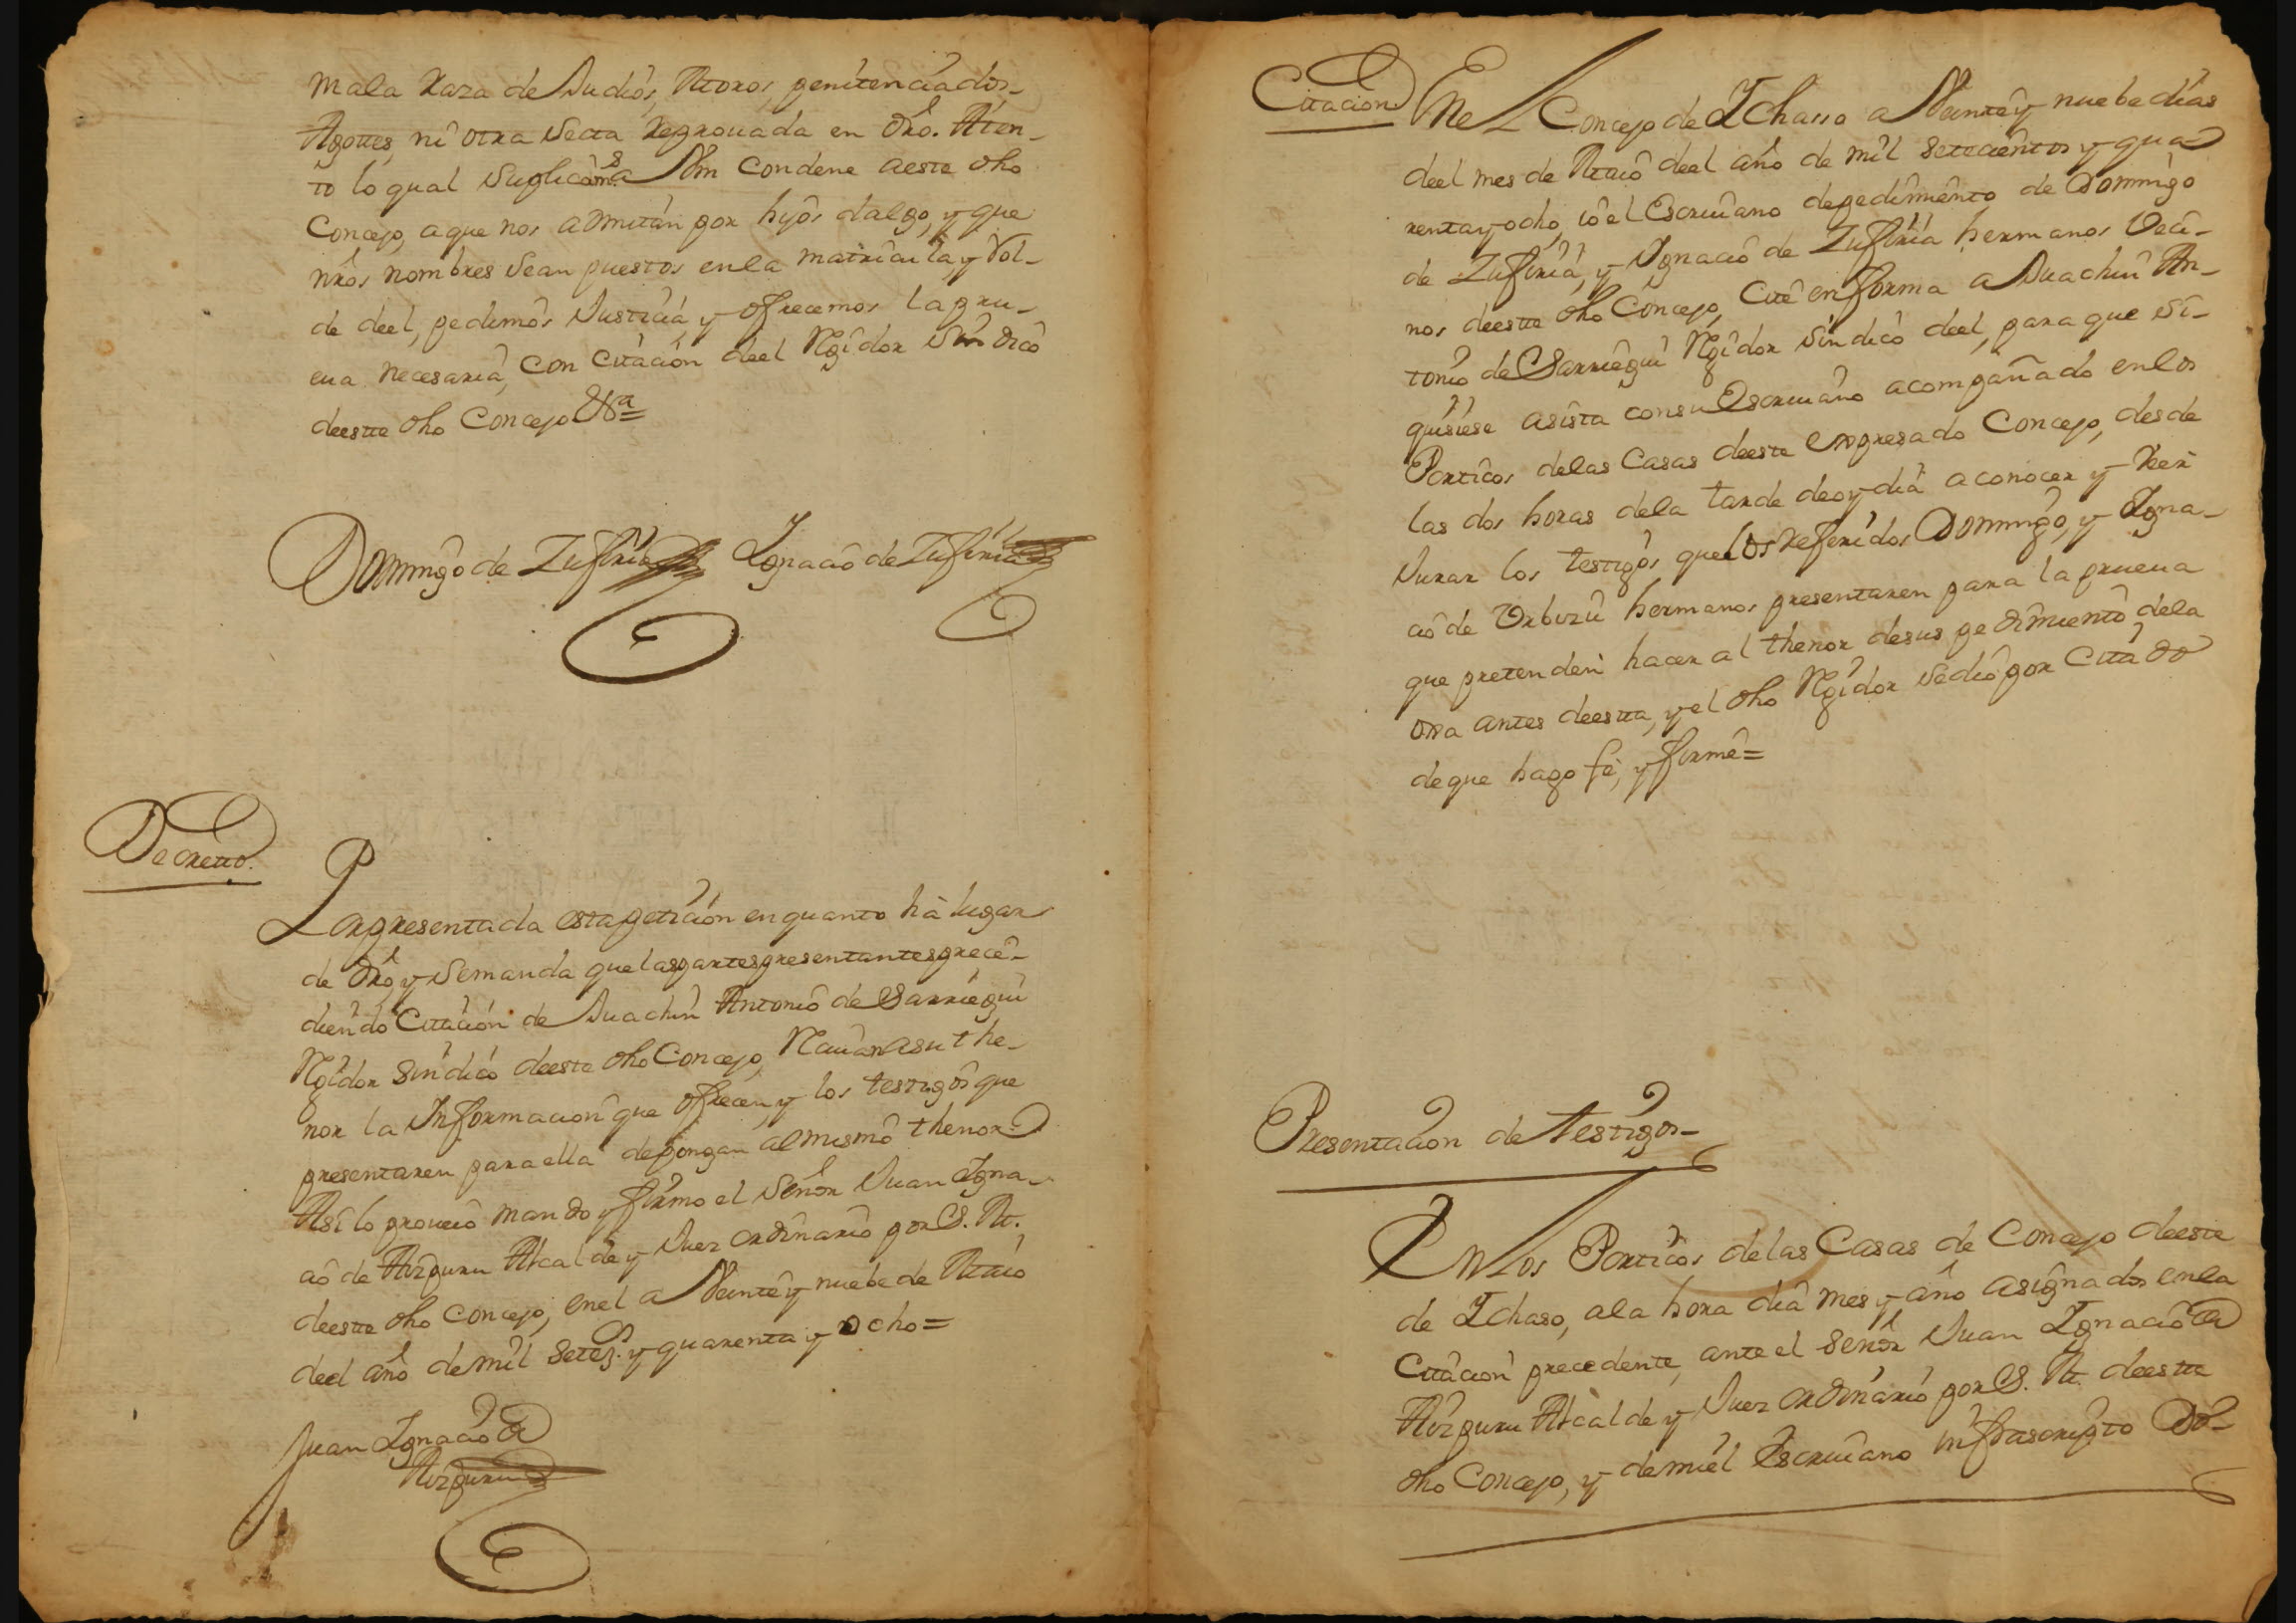 mala Raza de Judiós, Moros, penitenciados
Agottes, ni otra Secta Reprouada en dro. Aten-
to lo qual Suplicamos a Vm Condene a este dho
Concejo, a que nos admitan por hijos dalgo, y que
nros nombres Sean puestos en la matricula, y Rol-
de deel, pedimos Justicia, y ofrecemos la pru-
eua necesaria, Con Citacion deel Rgidor Sindico
deestte dho Concejo &ra=
Domingo de Zufiria Ignacio de Zufiria
Decretto.
Por presentada esta peticion en quanto há lugar
de dro, y Se manda que las partes presentantes prece-
diendo Citacion de Juachin Antonio de Sarriegui
Rgidor Sindico deeste dho Concejo, Rciuan asu the-
nor la Informacion que ofrecen, y los testigos que
presentaren para ella depongan al mismo thenor
Asi lo proueió mando y firmo el Señor Juan Igna-
cio de Aizpuru Alcalde y Juez ordinario por S. M.
deestte dho Concejo, en el a Veinte y nuebe de Maio
deel año de mil Setezs. y quarenta y ocho=
Juan Ignacio de
Aizpuru
Citacion. En el Concejo de Ichasso a Veinte y nuebe dias
deel mes de Maio deel año de mil Setecientos y qua
renta y ocho, io el Escriuano de pedimiento de Domingo
de Zufiria, y Ignacio de Zufiria hermanos Veci-
nos deestte dho Concejo, Cite en forma a Juachin An-
tonio de Sarriegui Rgidor Sindico deel, para que Si-
quisiese asista con su Escriuano acompañado en los
Porticos delas Casas deeste expresado Concejo, desde
las dos horas dela tarde de oy dia a conocer y Ver
Jurar los testigos que los Referidos Domingo, y Igna-
cio de Orbuzu hermanos presentaren para la prueua
que pretenden hacer al thenor desus pedimiento, dela
otra antes deestta, y el dho Rgidor Se dio por Citado
de que hago fé, y firmé=
Presentacion de testigos-
En Los Porticos delas Casas de Concejo deeste
de Ichaso, ala hora dia mes y año asignados en la
Citacion precedente, ante el Señor Juan Ignacio de
Aizpuru Alcalde y Juez ordinario por S. M. deestte
dho Concejo, y de mi el Escriuano infrascripto Do-